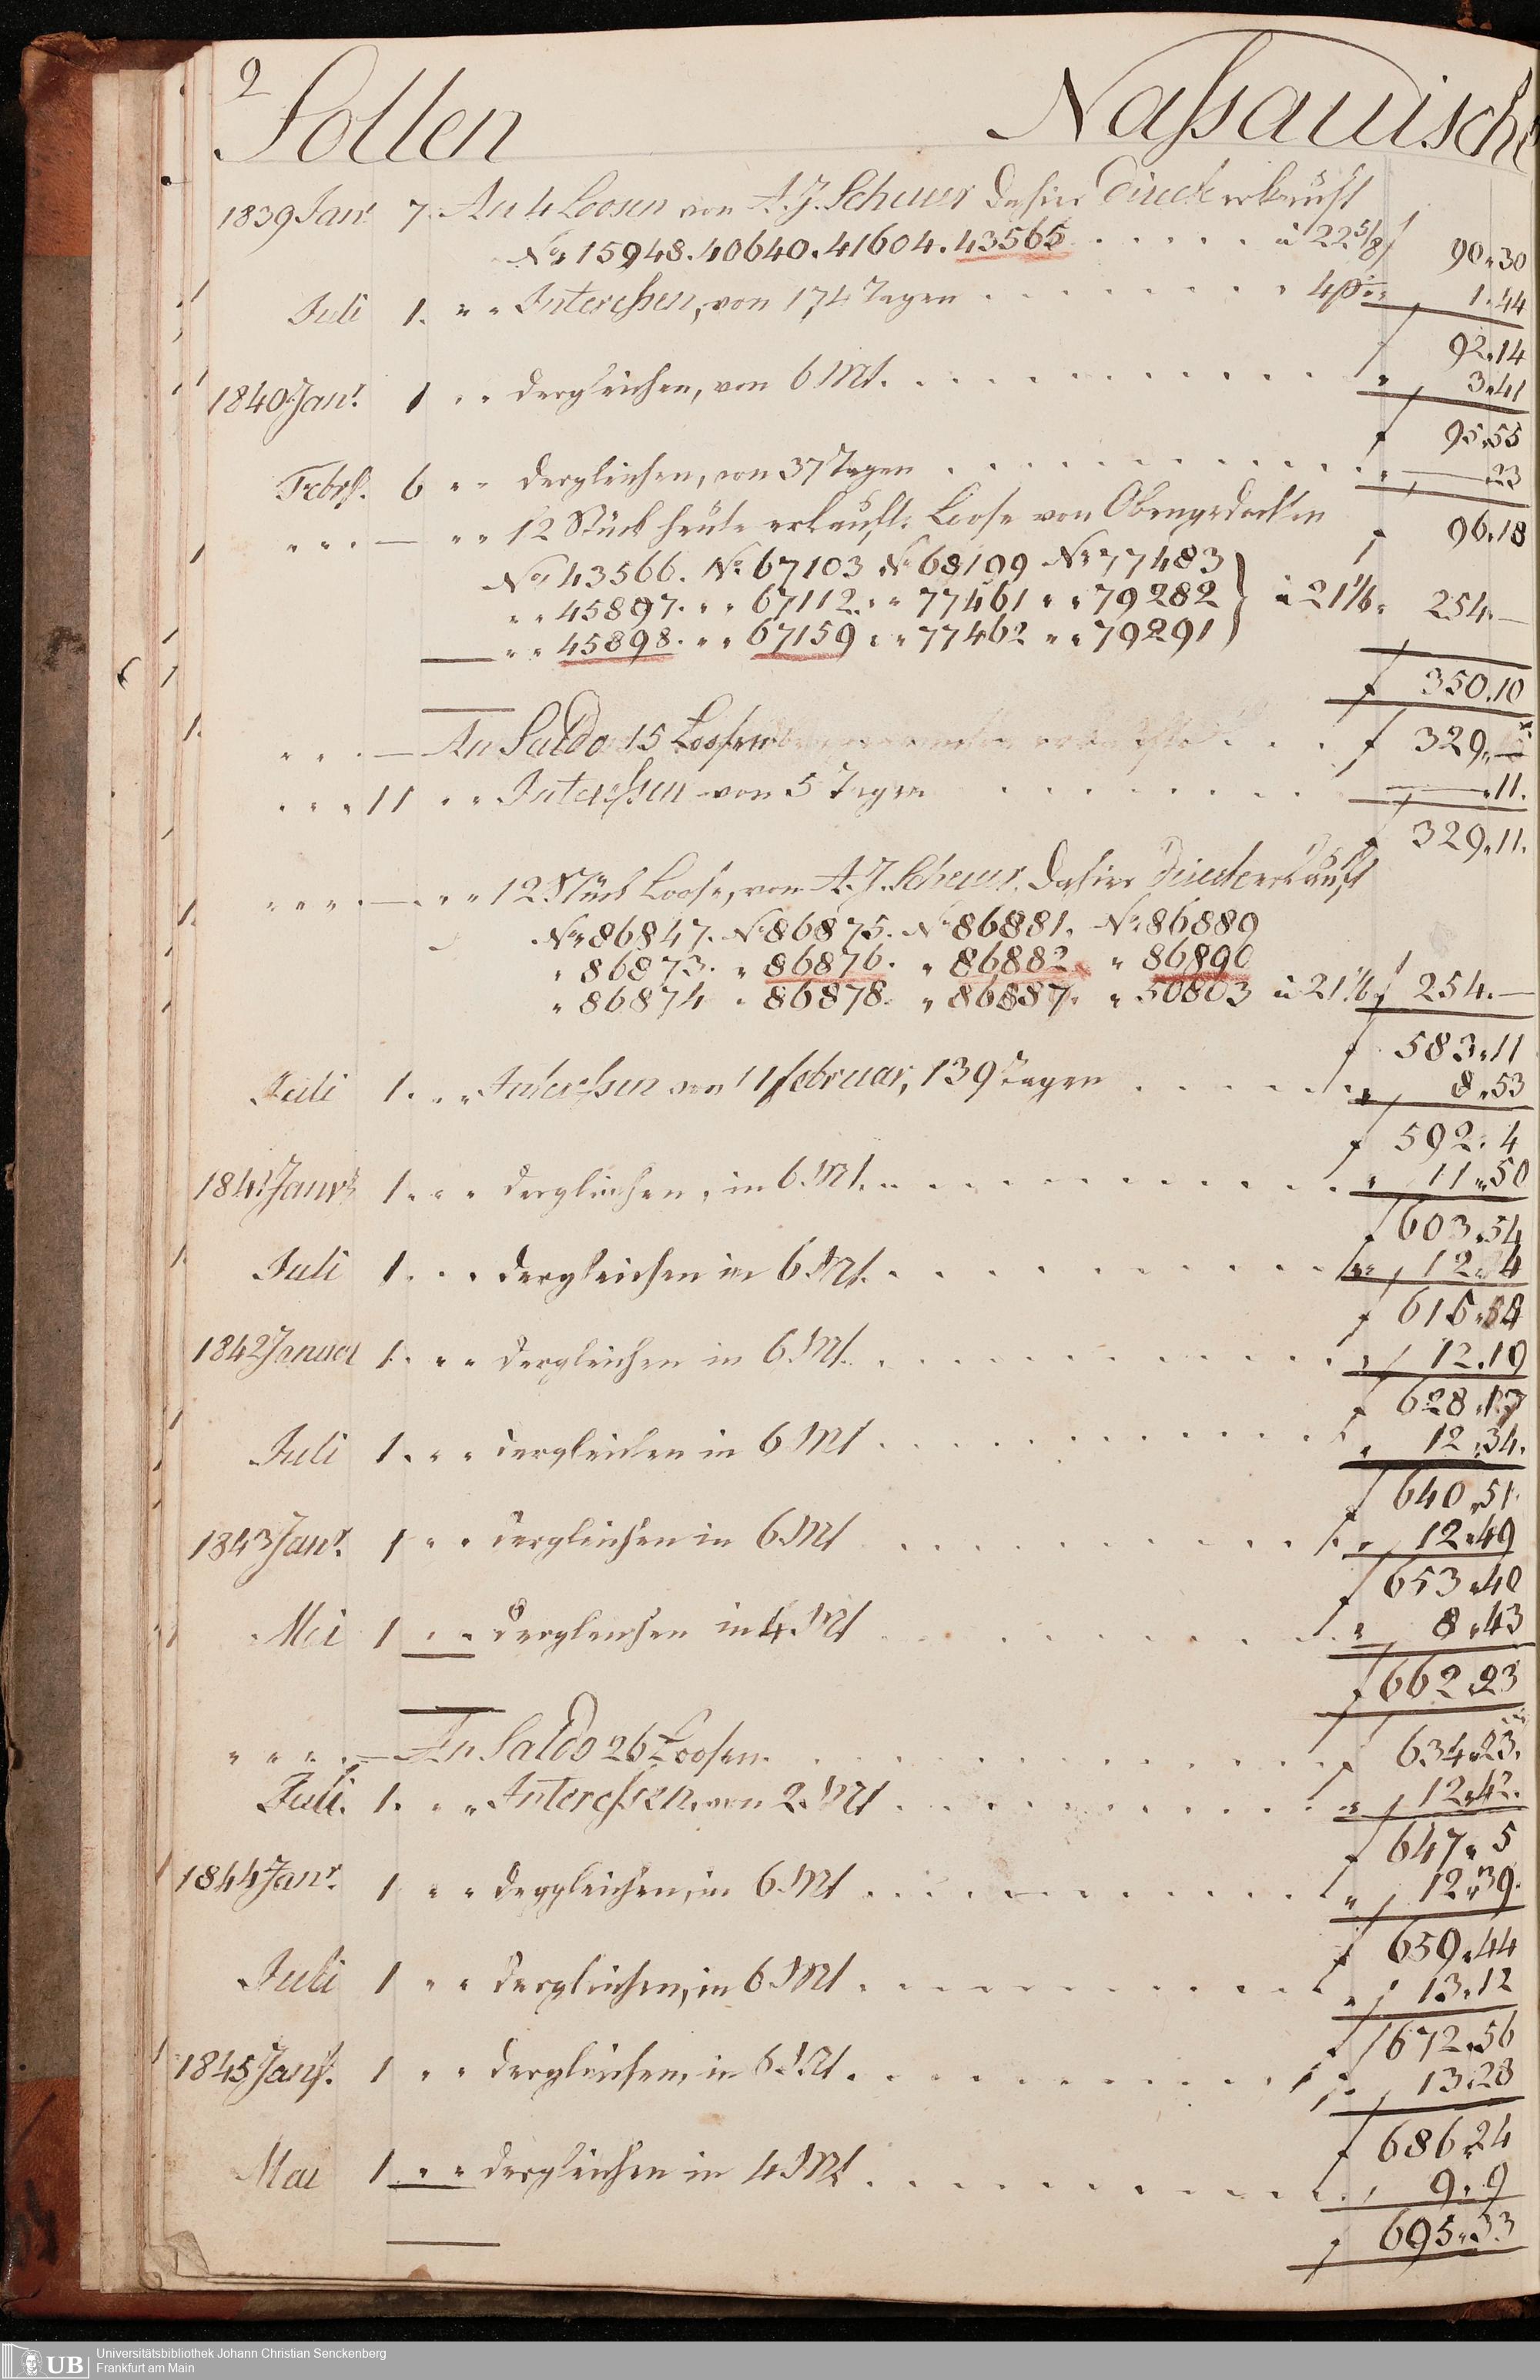 2
Sollen Nassauische
1839 Janr. 7. An 4 Loosen von A. J. Scheuer dahier direct erkauft
No. 15948. 40640. 41604. 43565. . . . . . à 22 5/8 f 90.30
Juli 1. " " Interessen, von 174 Tagen . . . . . . . . 4p. " 1.44
f 92.14
1840 Janr. 1 " " dergleichen, von 6 Mt. . . . . . . . . . . " 3.41
f 95.55
Febr. 6 " " dergleichen, von 37 Tagen . . . . . . . . . . " — 23
f 96.18
" " " — " " 12 Stück heute erkaufte Loose von Obengedachten
No. 43566. No. 67103 No. 68109 No. 77483
" " 45897. " " 67112. " " 77461 " " 79282 à 21 1/6 " 254. —
" " 45898. " " 67159 " " 77462 " " 79291
f 350.10
" " " — An Saldo 15 Loosen . . . f 329. —
" " " 11 " " Interessen von 5 Tagen . . . . . . . . — " 11.
f 329.11.
" " " " — " " 12 Stück Loose, von A. J. Scheuer dahier direct erkauft
No. 86847. No. 86875. No. 86881. No. 86889
" 86873. " 86876. " 86882. " 86890
" 86874 " 86878. " 86887. " 50803 à 21 1/6 f 254. —
f 583.11
Juli 1. " " Interessen von 11 Februar, 139 Tagen . . . . . " 8.53
f 592. 4
1841 Janr. 1. " " dergleichen, in 6. Mt. . . . . . . . . . . " 11.50
f 603.54
Juli 1. " " dergleichen in 6 Mt. . . . . . . . . . . " 12. 4
f 615.58
1842 Januar 1. " " dergleichen in 6. Mt. . . . . . . . . . . " 12.19
f 628.17
Juli 1. " " dergleichen in 6 Mt . . . . . . . . . . " 12.34.
f 640.51.
1843 Janr. 1 " " dergleichen in 6 Mt . . . . . . . . . . " 12.49
f 653.40
Mai 1 " " dergleichen in 4 Mt . . . . . . . . . . " 8.43
f 662.23
" " " " — An Saldo 26 Loosen. . . . . . . . . . . f 634.23.
Juli. 1. " " Interessen, von 2. Mt . . . . . . . . . . " 12.42.
f 647. 5
1844 Janr. 1 " " dergleichen, in 6. Mt . . . . . . . . . . " 12.39.
f 659.44
Juli 1 " " dergleichen, in 6 Mt . . . . . . . . . . " 13.12
f 672.56
1845 Janr. 1 " " dergleichen, in 6 Mt. . . . . . . . . . . " 13.28
f 686.24
Mai 1 " " dergleichen in 4 Mt . . . . . . . . . . " 9. 9
f 695.33
UB Universitätsbibliothek Johann Christian Senckenberg
Frankfurt am Main